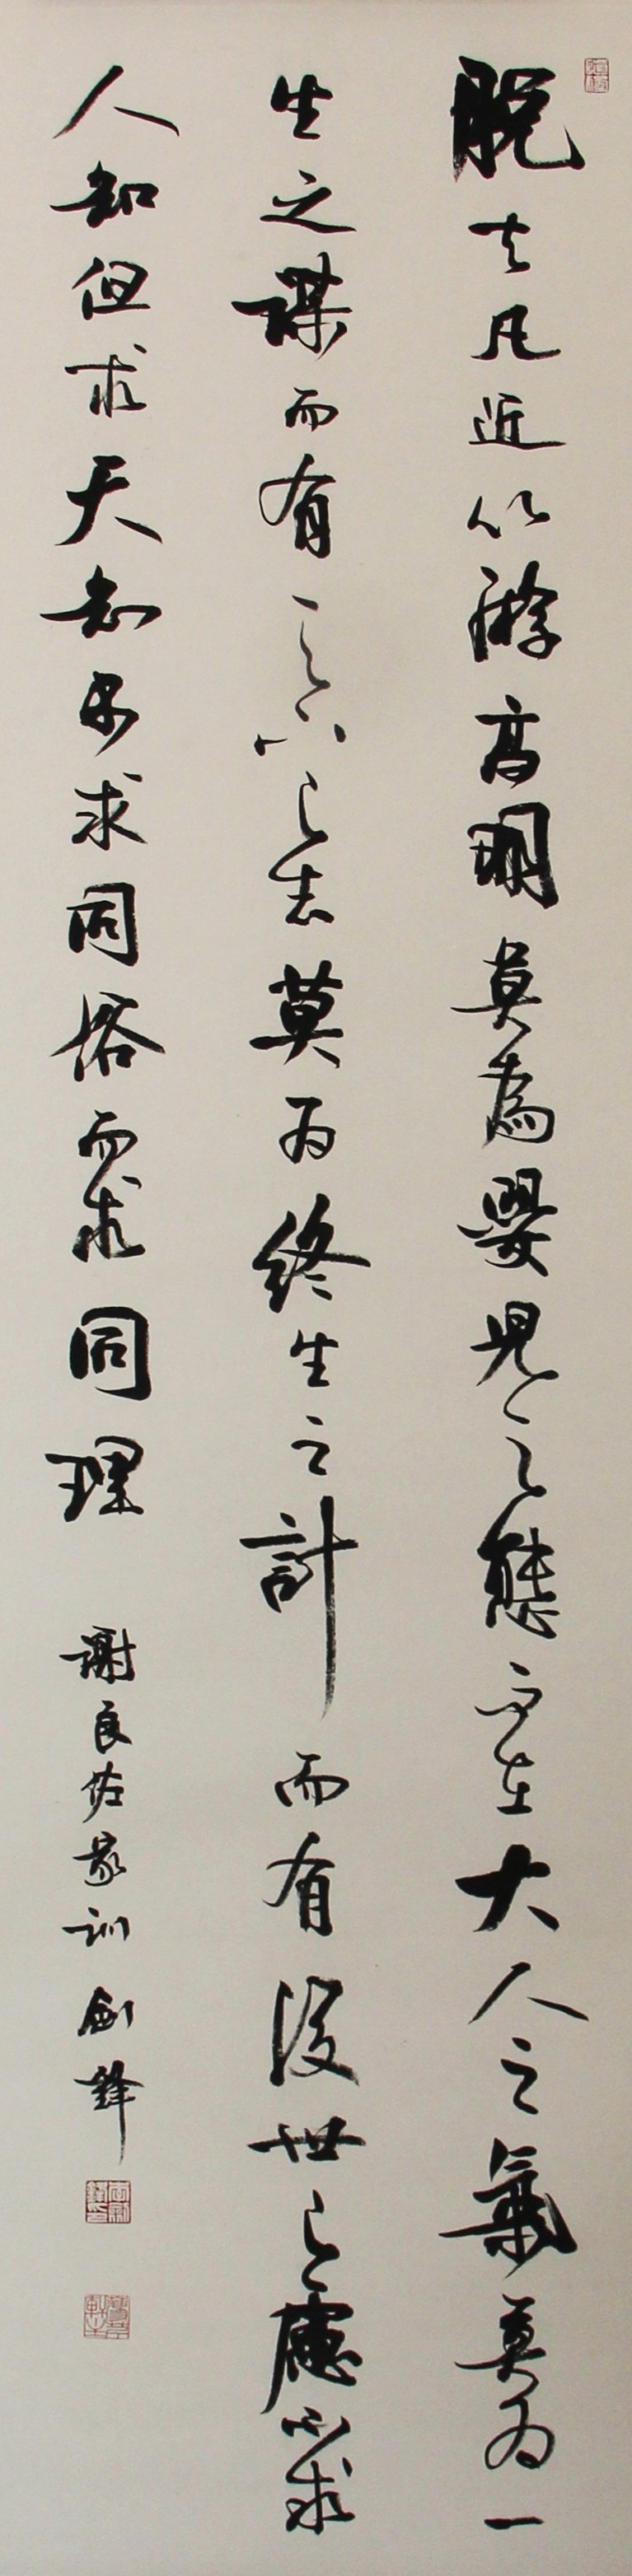 脫去凡近以游高明莫為嬰兒之態而在大人之氣莫為一
生之謀而有天下之志莫为終生之計而有後世之慮不求
人知但求天知不求同俗而求同理
謝良佐家訓 劍鋒